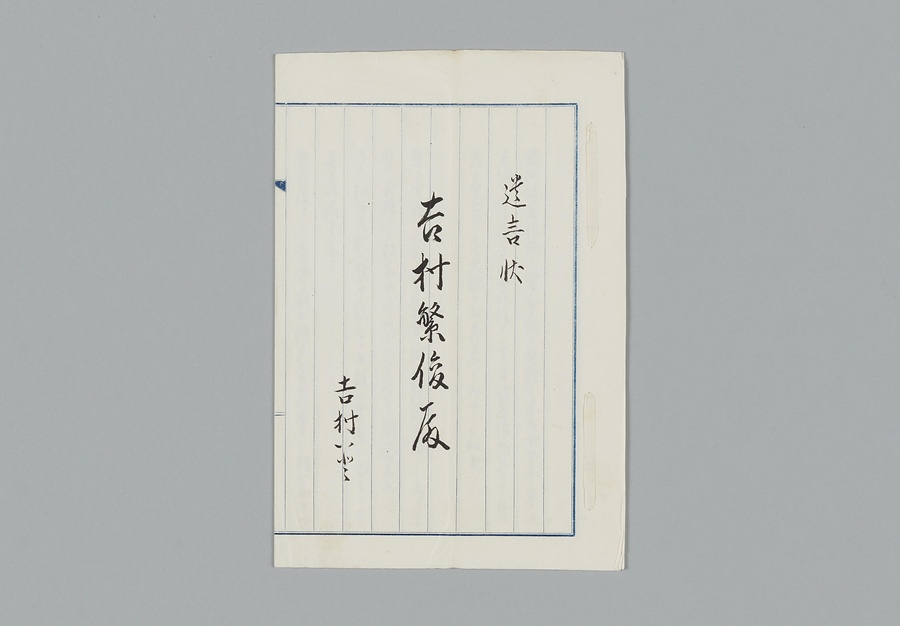 遺言状
吉村繁俊殿
吉村